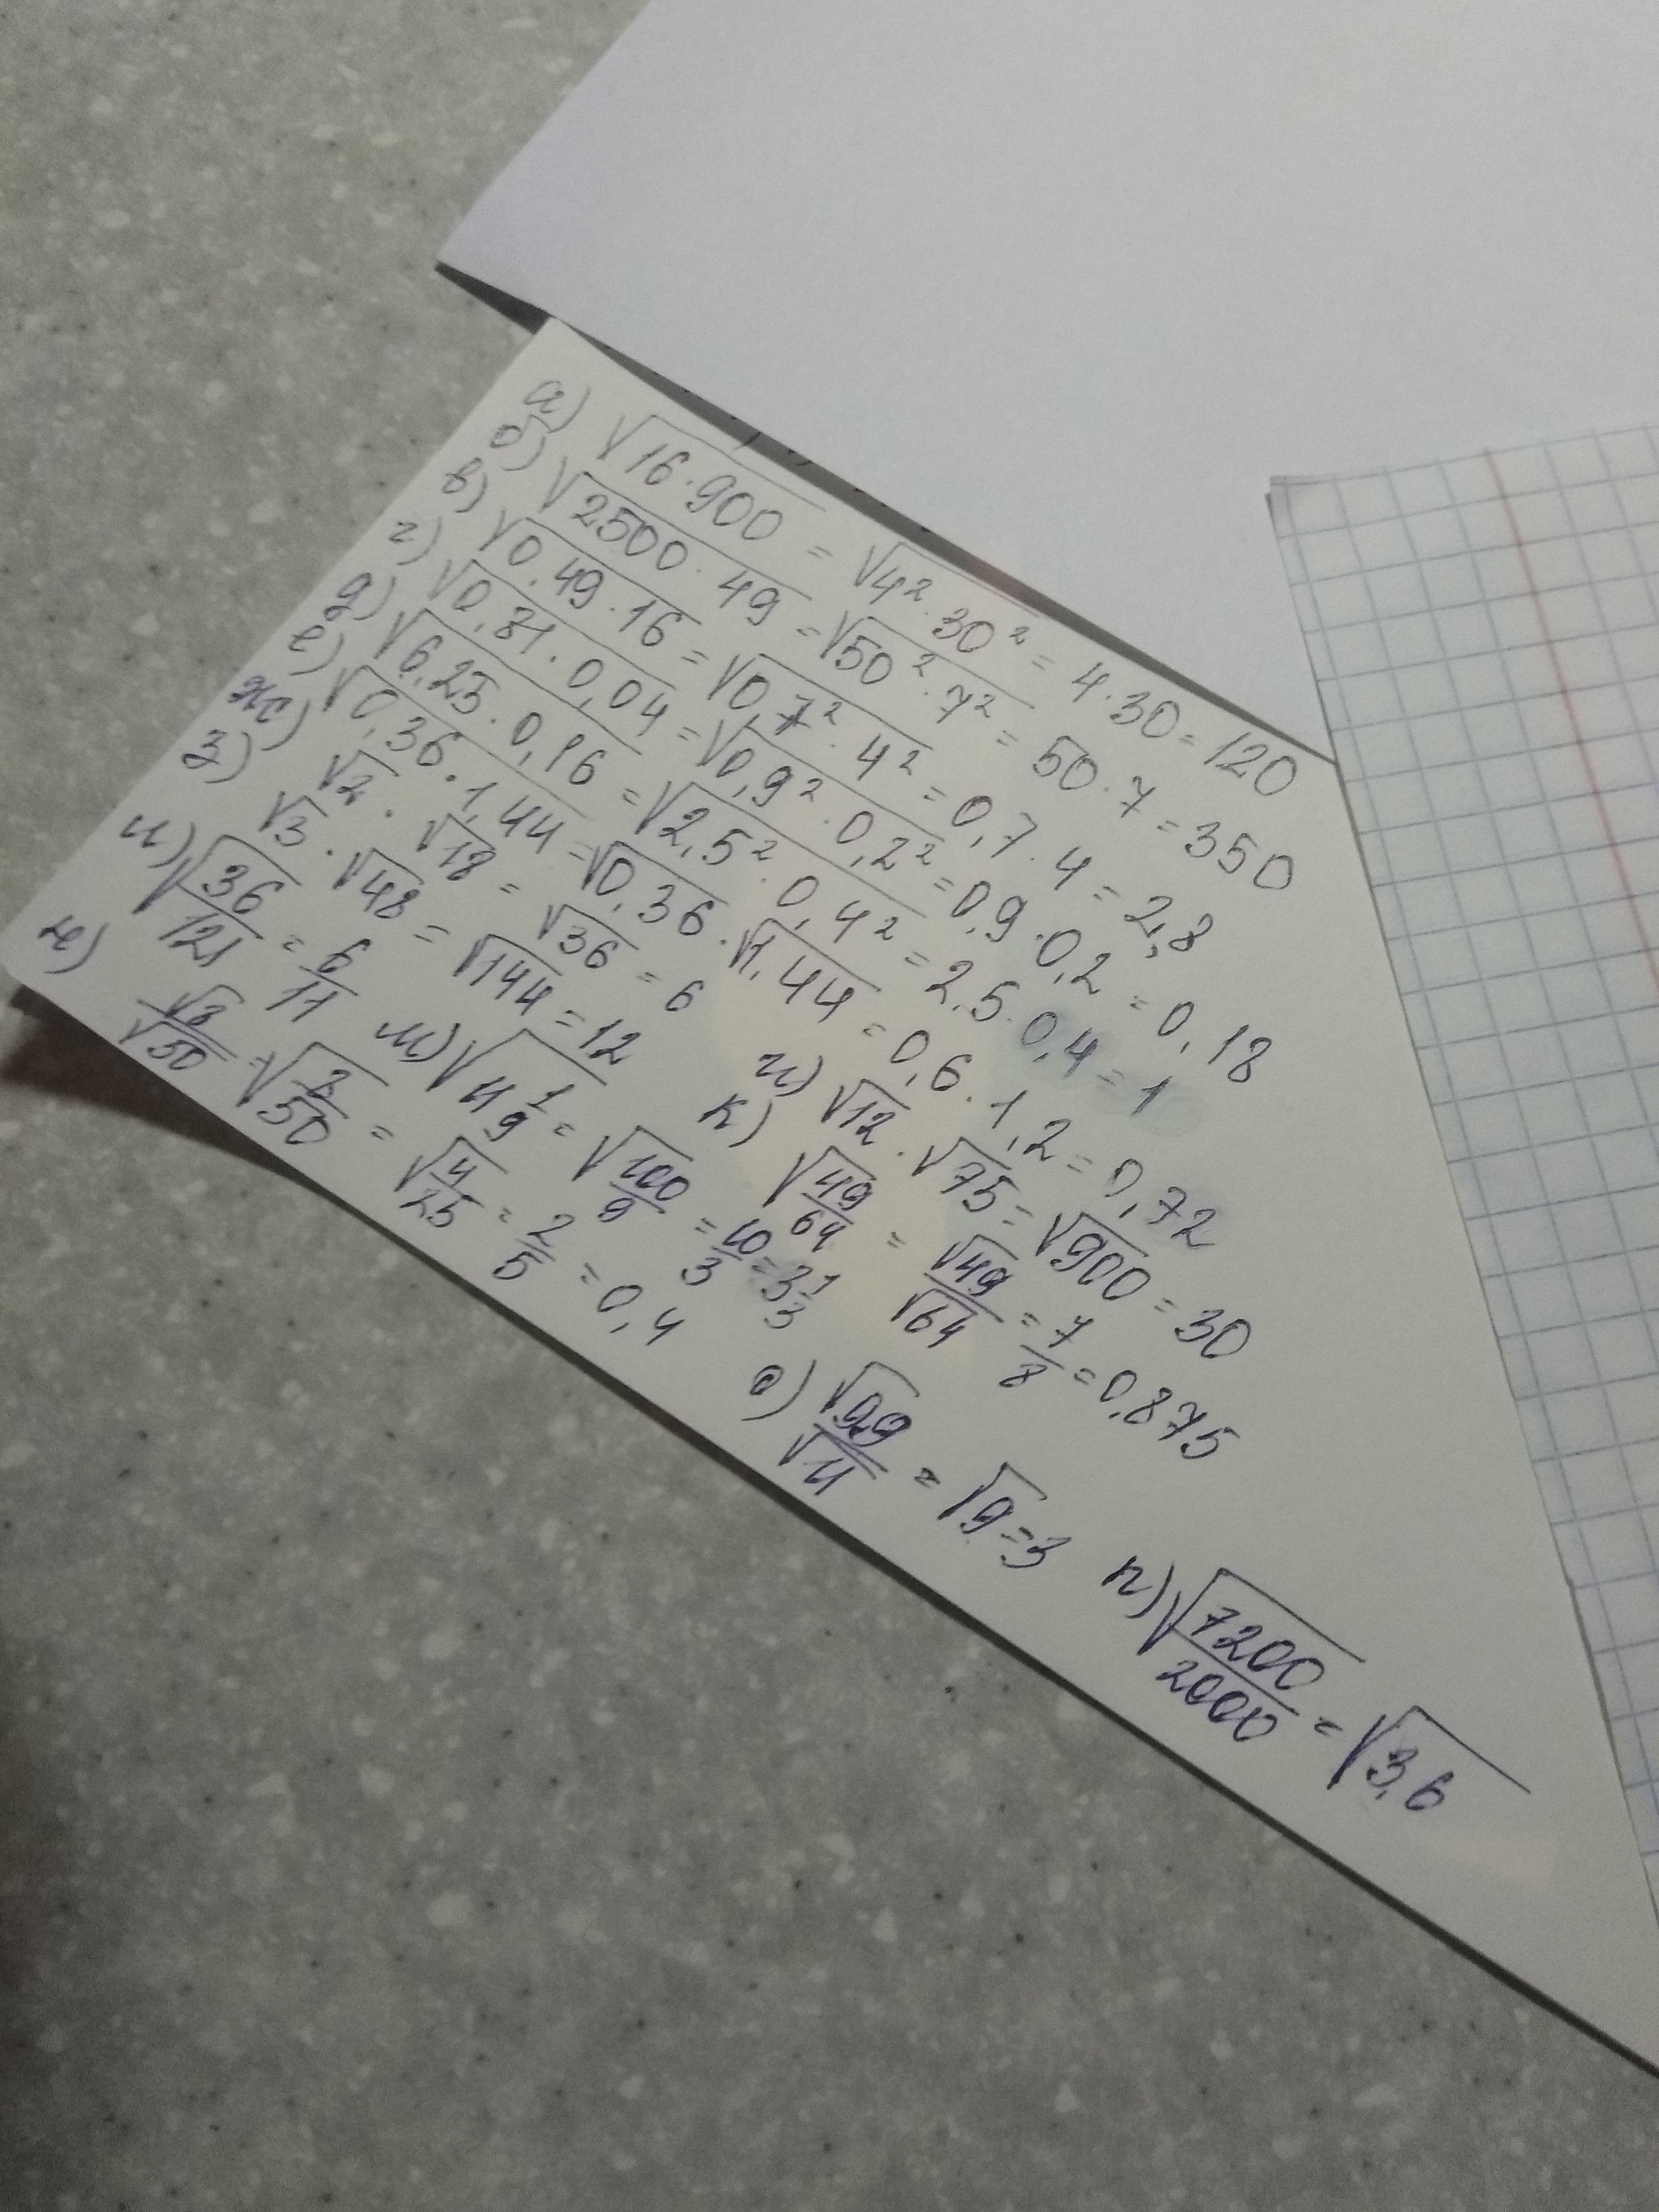 а) √16·900 = √4²·30² = 4·30 = 120
б) √2500·49 = √50²·7² = 50·7 = 350
в) √0,49·16 = √0,7²·4² = 0,7·4 = 2,8
г) √0,81·0,04 = √0,9²·0,2² = 0,9·0,2 = 0,18
д) √6,25·0,16 = √2,5²·0,4² = 2,5·0,4 = 1
е) √0,36·1,44 = √0,36·√1,44 = 0,6·1,2 = 0,72
ж) √2·√18 = √36 = 6
з) √3·√48 = √144 = 12
и) √12·√75 = √900 = 30
к) √49/64 = √49/√64 = 7/8 = 0,875
л) √36/121 = 6/11
м) √11 1/9 = √100/9 = 10/3 = 3 1/3
н) √8/√50 = √8/50 = √4/25 = 2/5 = 0,4
о) √99/√11 = √9 = 3
п) √7200/2000 = √3,6